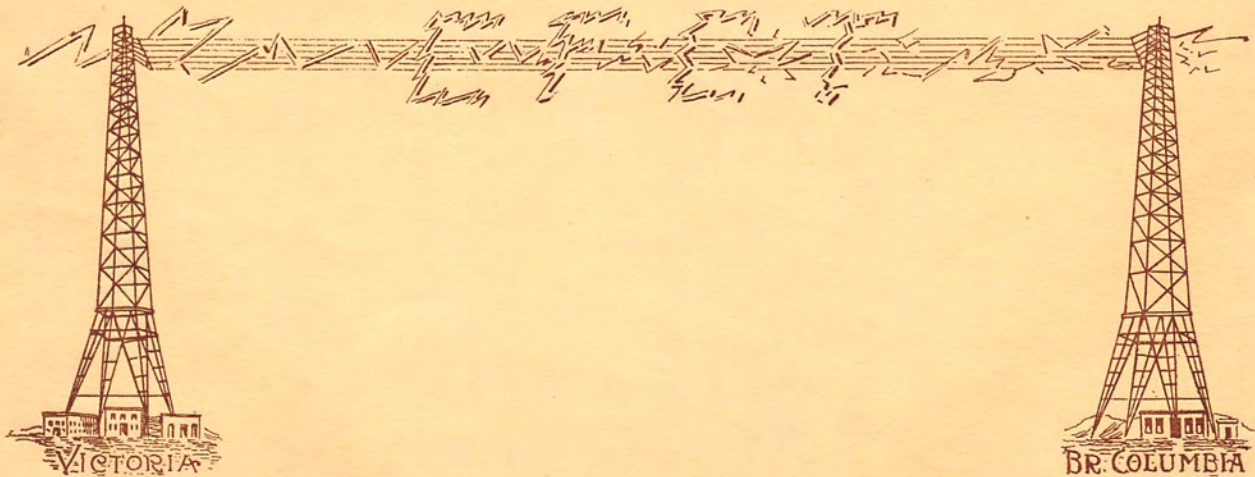 VICTORIA
BR. COLUMBIA